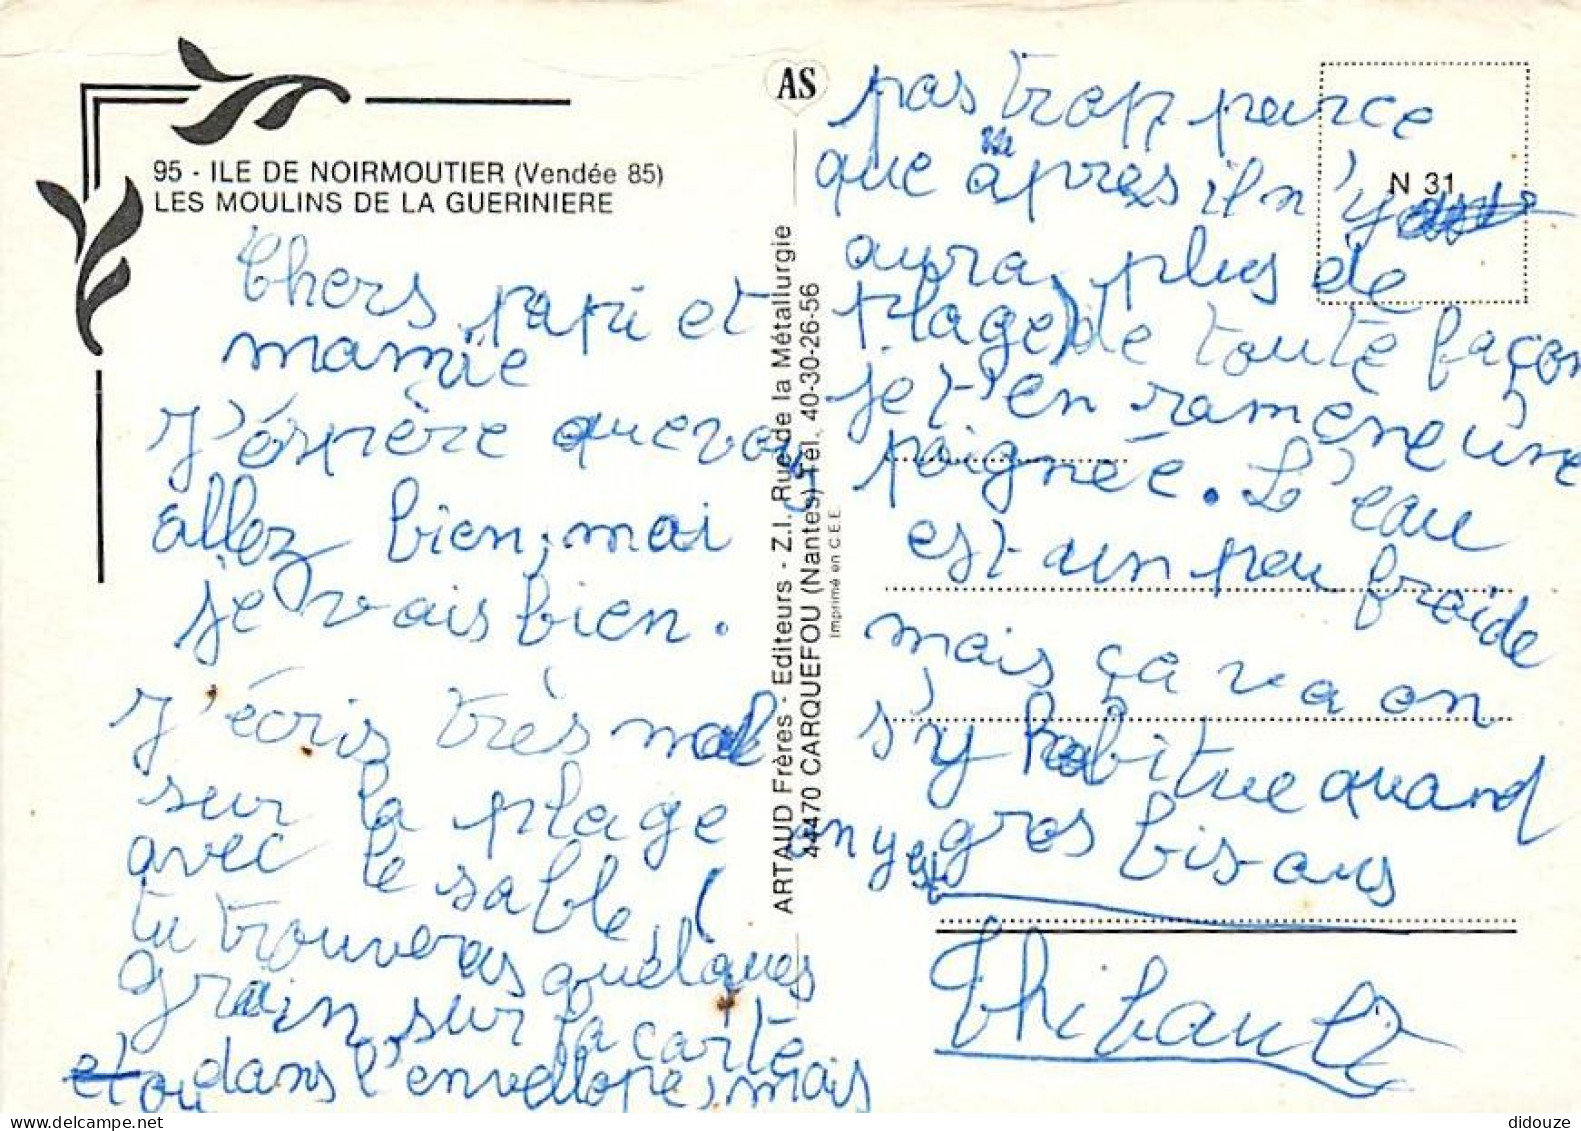 95 - ILE DE NOIRMOUTIER (Vendée 85)
LES MOULINS DE LA GUERINIERE
Chers papi et
mamie
J'éspère que vous
allez bien, moi
je vais bien.
J'écris très mal
sur la plage
avec le sable, (
tu trouveras quelques
grain, sur la carte
et ou dans l'enveloppe, mais
AS
ARTAUD Frères - Editeurs - Z.I. Rue de la Métallurgie
44470 CARQUEFOU (Nantes) Tél. 40-30-26-56
Imprimé en C.E.E.
N 31
pas trop parce
que après il n'y
aura plus de
plage) de toute façon
je t'en ramène une
poignée. L'eau
est un peu froide
mais ça va on
s'y habitue quand
on y est gros bisous
Thibault
didouze